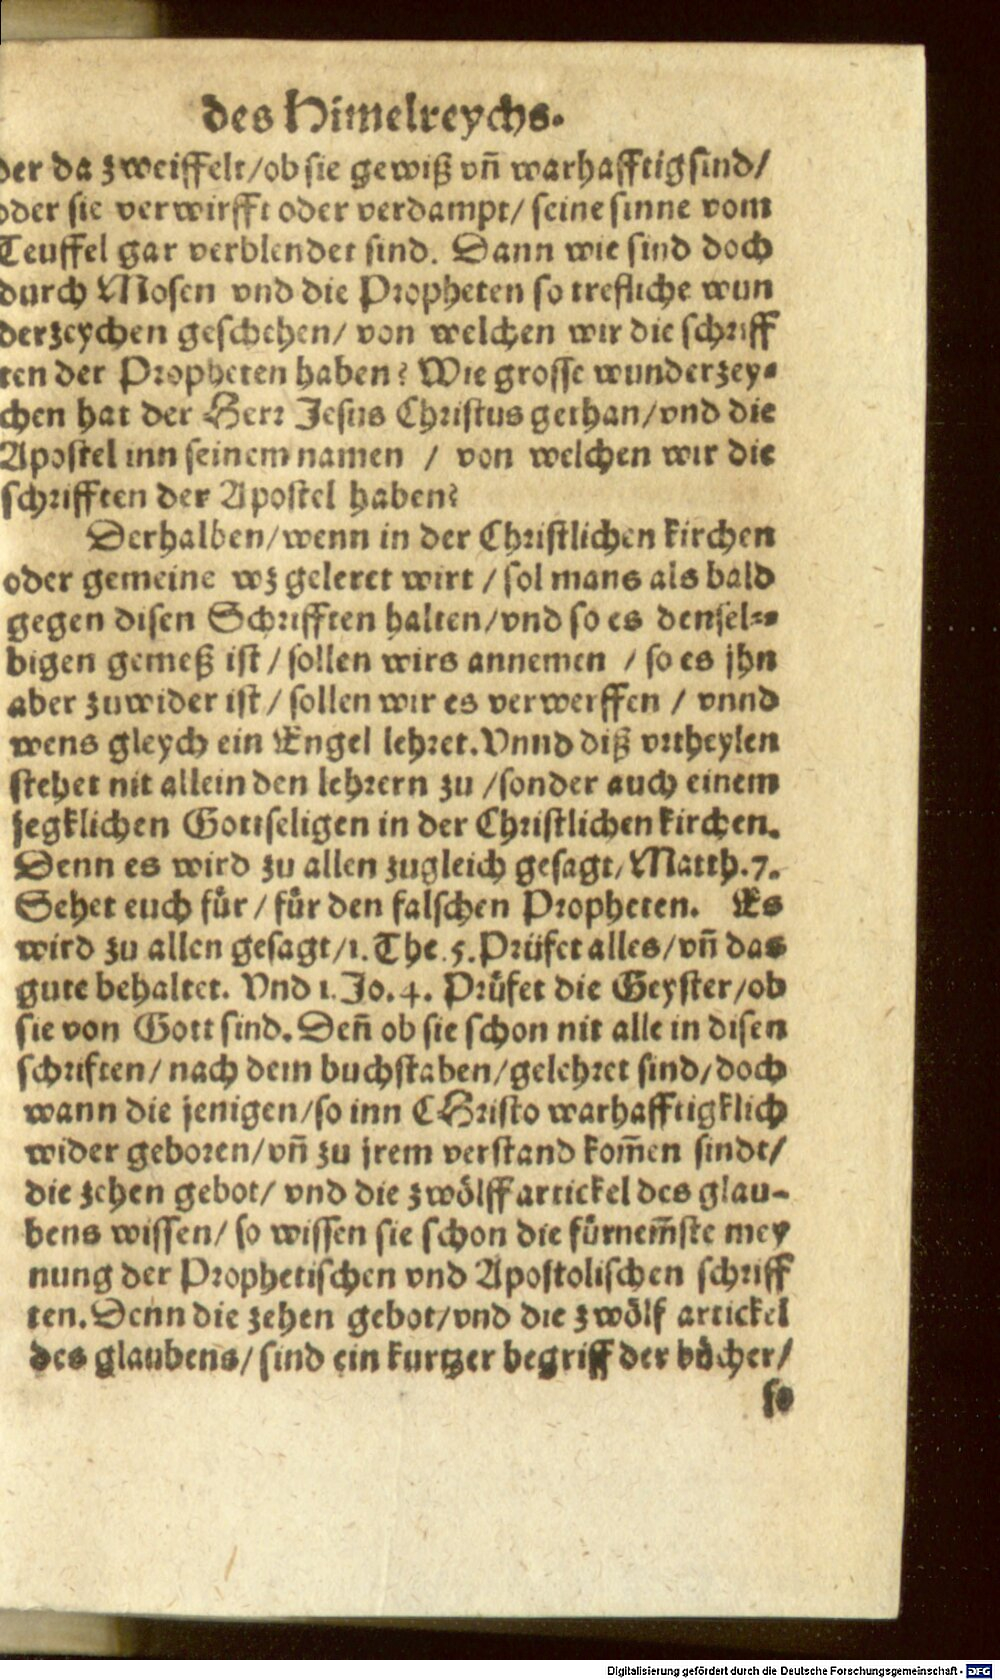 des Himelreychs.
der da zweiffelt/ob sie gewiß vn̄ warhafftig sind/
oder sie verwirfft oder verdampt/ seine sinne vom
Teuffel gar verblendet sind. Dann wie sind doch
durch Mosen vnd die Propheten so trefliche wun
derzeychen geschehen/ von welchen wir die schriff
ten der Propheten haben? Wie grosse wunderzey-
chen hat der Herr Jesus Christus gethan/vnd die
Apostel inn seinem namen / von welchen wir die
schrifften der Apostel haben?
Derhalben/wenn in der Christlichen kirchen
oder gemeine wz geleret wirt / sol mans als bald
gegen disen Schrifften halten/vnd so es densel-
bigen gemeß ist / sollen wirs annemen / so es jhn
aber zuwider ist / sollen wir es verwerffen / vnnd
wens gleych ein Engel lehret. Vnnd diß vrtheylen
stehet nit allein den lehrern zu /sonder auch einem
jegklichen Gottseligen in der Christlichen kirchen.
Denn es wird zu allen zugleich gesagt, Matth.7.
Sehet euch fůr / fůr den falschen Propheten. Es
wird zu allen gesagt/1. The. 5. Prüfet alles/vn̄ das
gute behaltet. Vnd 1. Jo. 4. Průfet die Geyster/ob
sie von Gott sind. Den̄ ob sie schon nit alle in disen
schriften/ nach dem buchstaben/gelehret sind/doch
wann die jenigen/so inn CHristo warhafftigklich
wider geboren/vn̄ zu jrem verstand kom̄en sindt/
die zehen gebot/ vnd die zwölff artickel des glau-
bens wissen/ so wissen sie schon die fůrnem̄ste mey
nung der Prophetischen vnd Apostolischen schriff
ten. Denn die zehen gebot/vnd die zwölf artickel
des glaubens/ sind ein kurtzer begriff der bůcher/
so
Digitalisierung gefördert durch die Deutsche Forschungsgemeinschaft - DFG